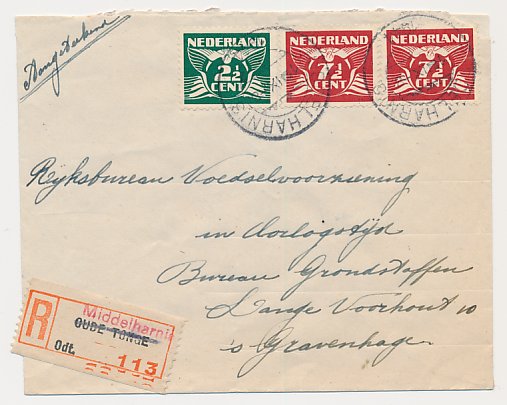 Aangetekend
NEDERLAND
2½
CENT
NEDERLAND
7½
CENT
NEDERLAND
7½
CENT
Rijksbureau Voedselvoorziening
in Oorlogstijd
Bureau Grondstoffen
Lange Voorhout 10
's Gravenhage
R
Middelharnis
OUDE-TONGE
Odt.
113